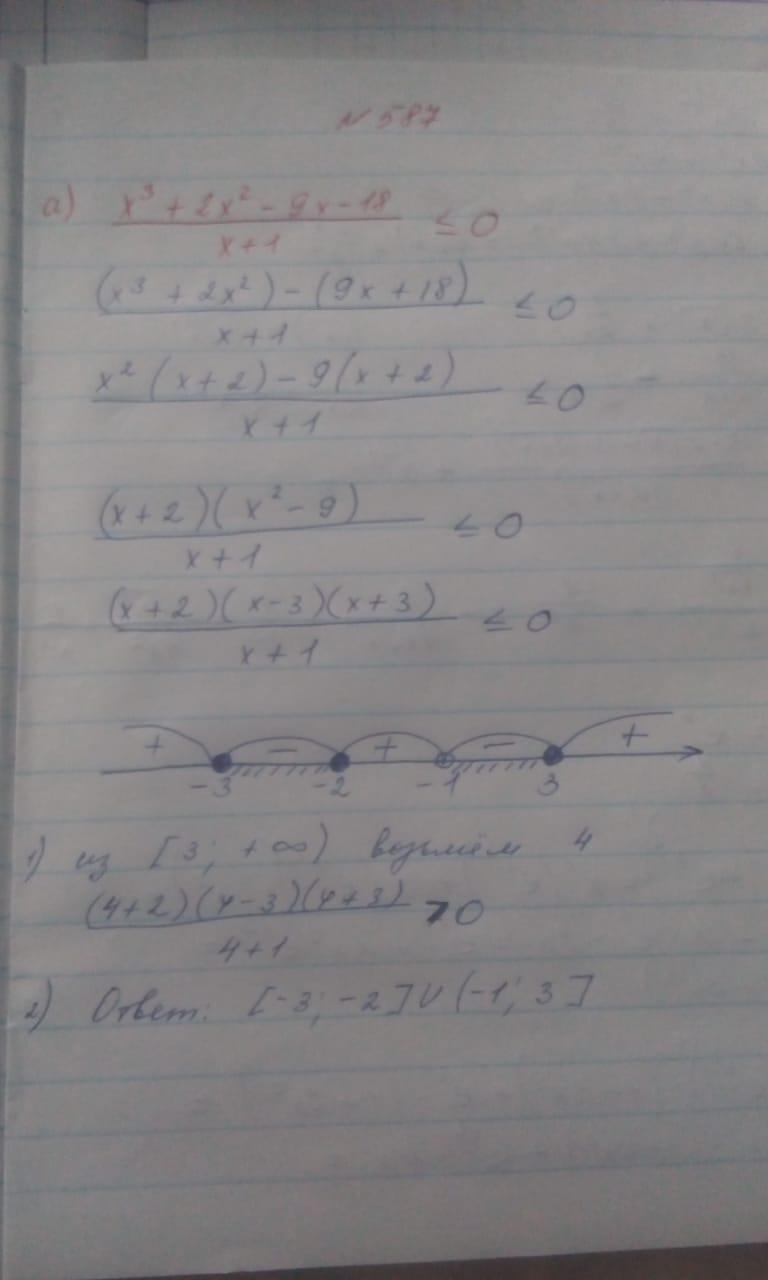 № 587
а) x³ + 2x² - 9x - 18 / x + 1 ≤ 0
(x³ + 2x²) - (9x + 18) / x + 1 ≤ 0
x² (x + 2) - 9(x + 2) / x + 1 ≤ 0
(x + 2)(x² - 9) / x + 1 ≤ 0
(x + 2)(x - 3)(x + 3) / x + 1 ≤ 0
+ - + - +
-3 -2 -1 3
1) из [3; +∞) возьмём 4
(4+2)(4-3)(4+3) / 4+1 >0
2) Ответ: [-3; -2]U(-1; 3]